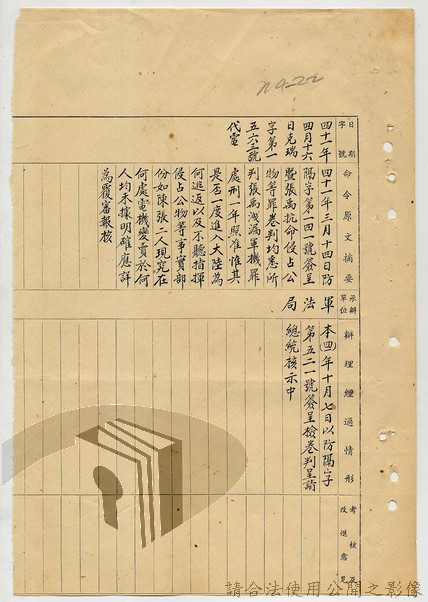 日期
字號
命令原文摘要
承辦
單位
辦理經過情形
考核及
改進意見
四十一年
四月十六
日克瑞
字第一
五六二號
代電
四十一年三月十四日防
隔字第一四一號簽呈
暨張禹抗命侵占公
物等罪卷判均悉所
判張禹洩漏軍機罪
處刑一年照准惟其
是否一度進入大陸為
何逃返以及不聽指揮
侵占公物等事實部
份如陳張二人現究在
何處電機變賣於何
人均未據明確應詳
為覆審報核
軍法局
本(四一)年十月七日以防隔字
第五二一號簽呈檢卷判呈請
總統核示中
請合法使用公開之影像